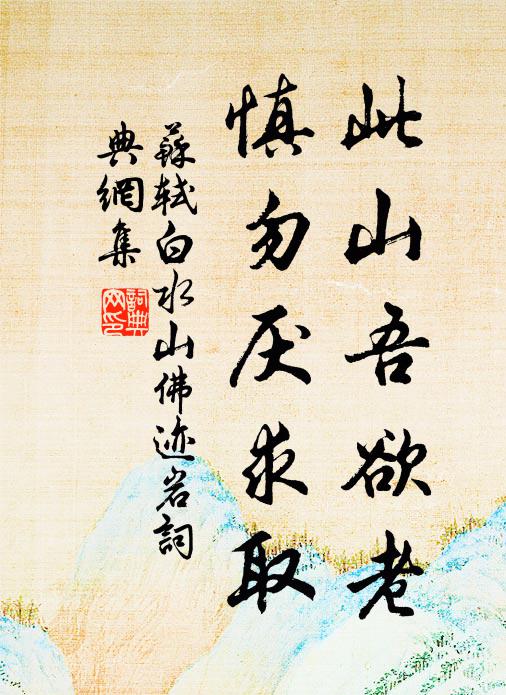 此山吾欲老
慎勿厌求取
蘇軾白水山佛迹岩詞
典網集
詞典網印